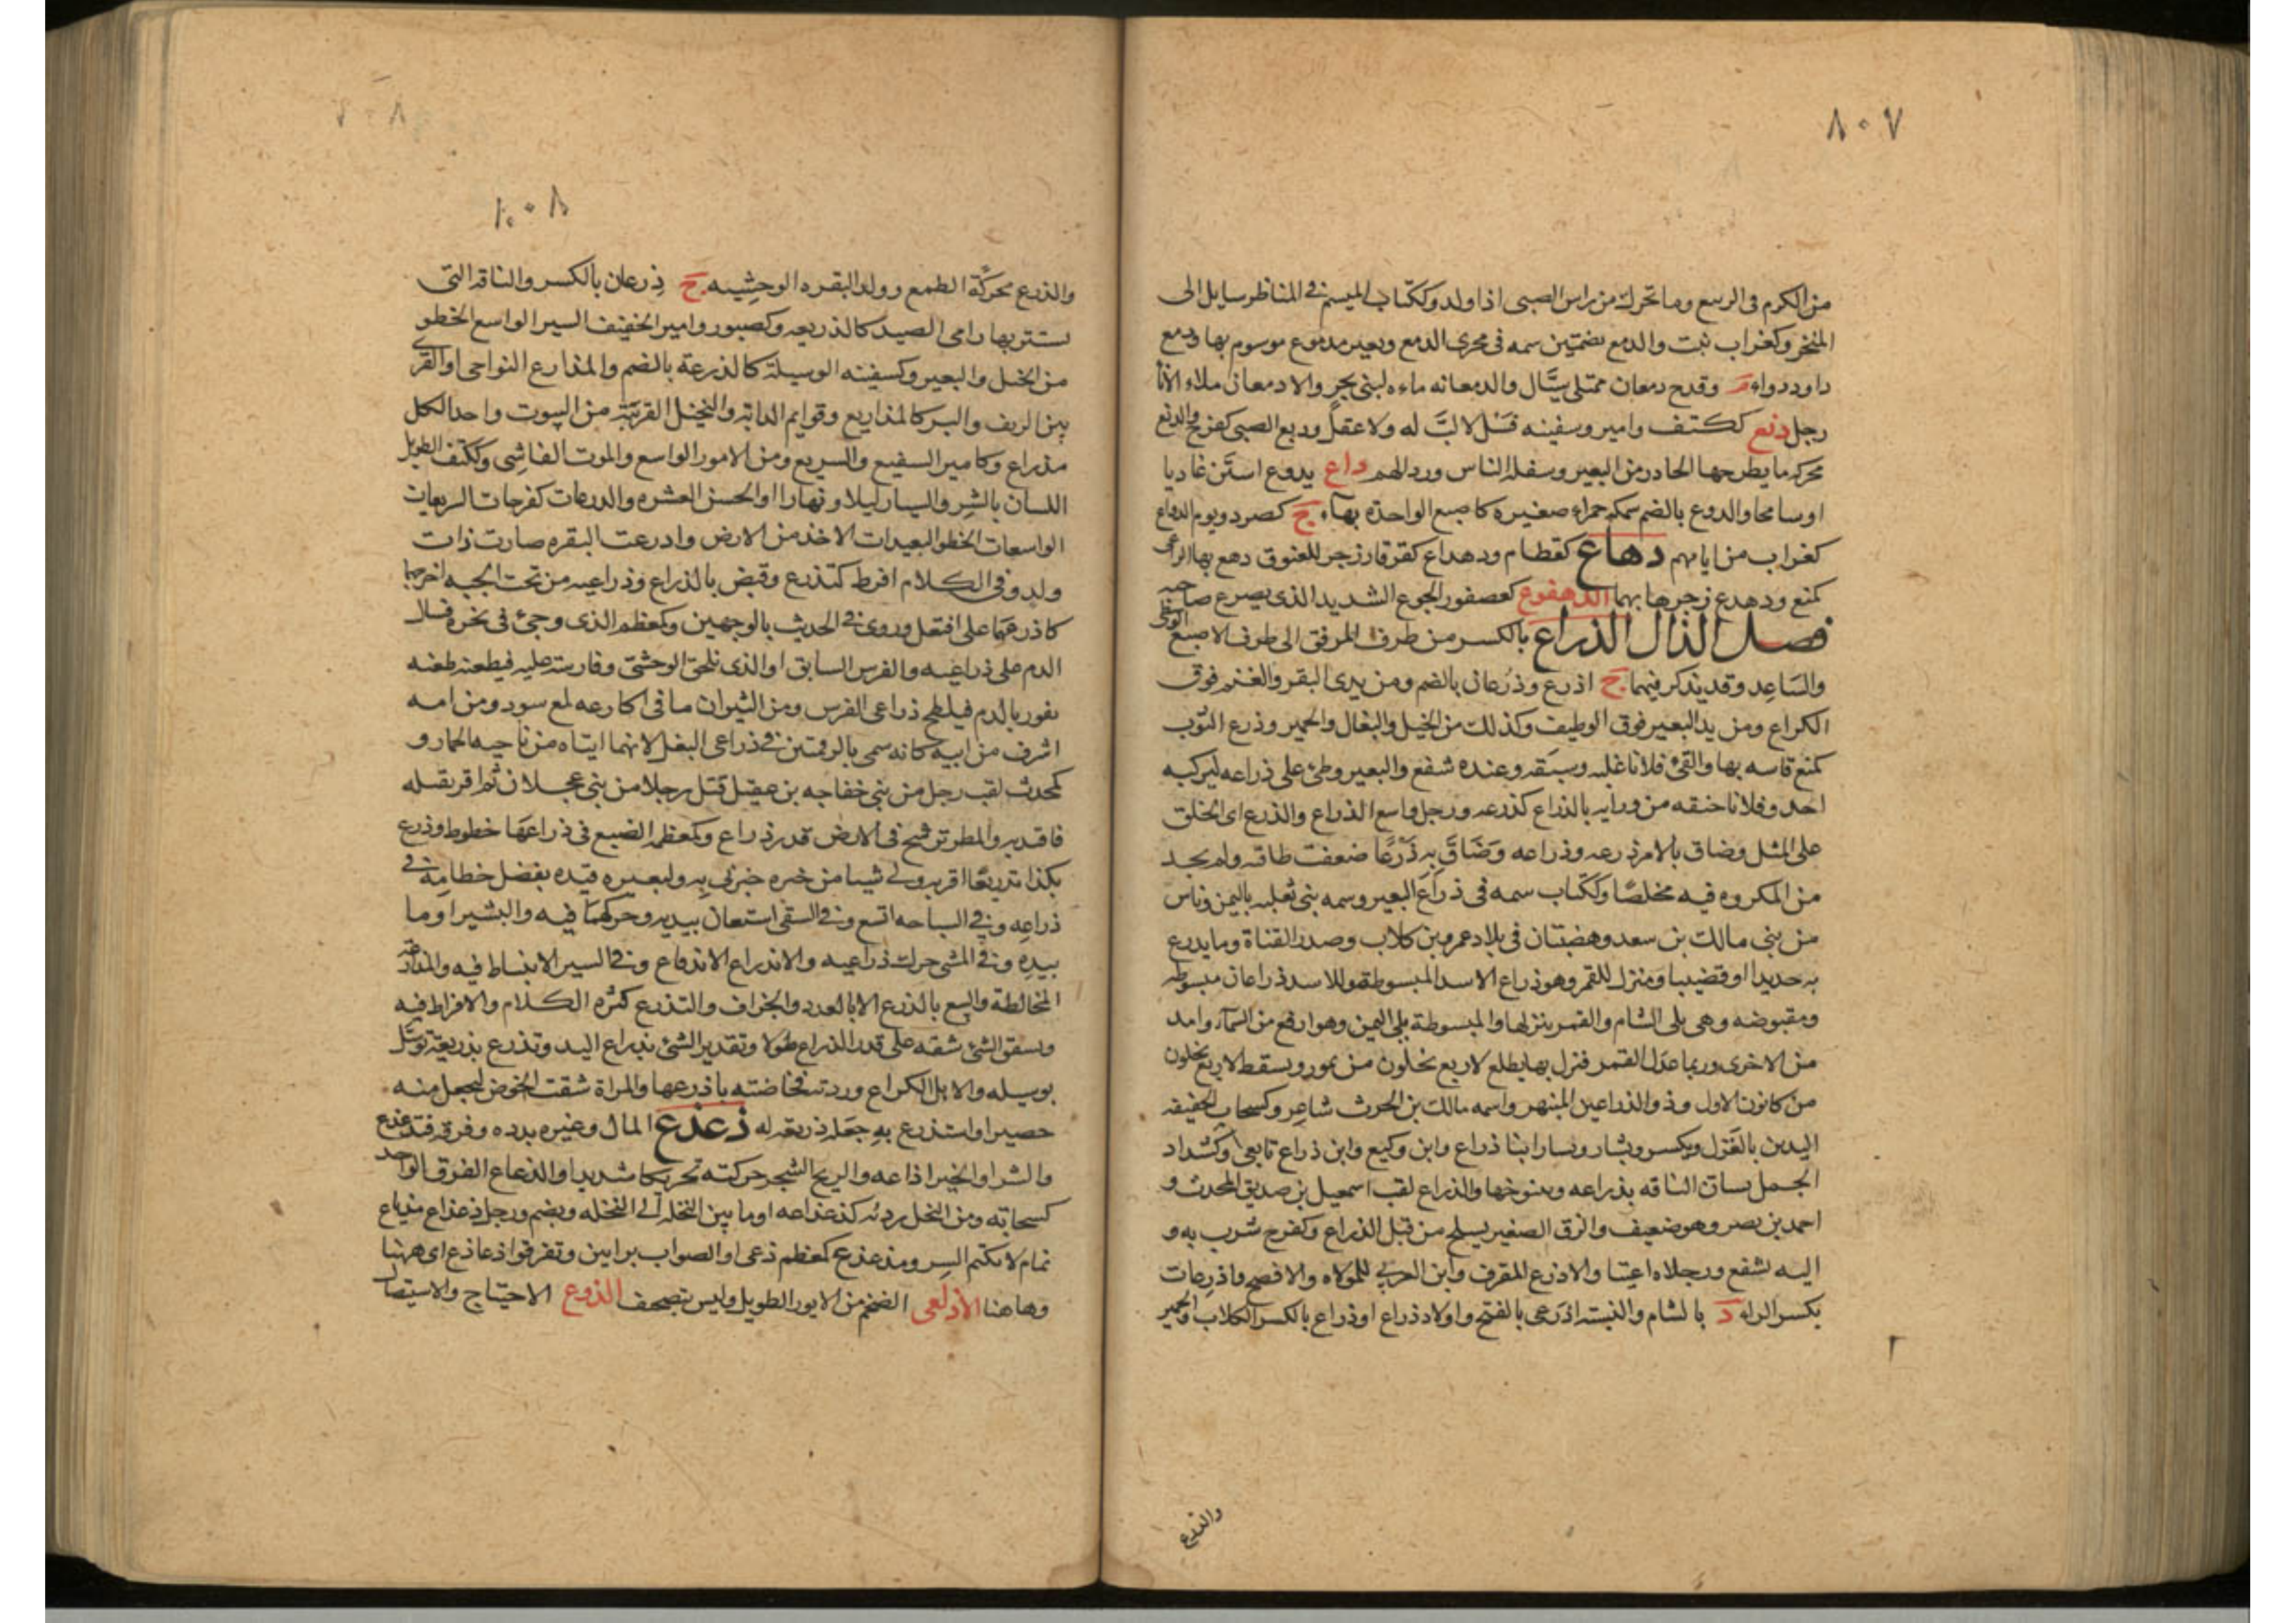 ٨٠٧
من الكرم فى الربيع وما تحرك من راس الصبى اذا ولد وككتاب الميسم فى المناظر سايل الى
المنخر وكغراب نبت والدمع بضمتين سمه فى مجرى الدمع وبعير مدموع موسوم بها ودمع
داود دواء م وقدح دمعان ممتلى سيَّال والدمعانه ماءه لبنى بحر والادمعان ملاء الانا
رجل دنع ككتف وامير وسفينه فسل لا لبَّ له ولا عقل ودنع الصبى كفرح والدنع
محركه ما يطرحها الجازر من البعير وسفلة الناس ورذالهم داع يدوع استن غاديا
او سابحا والدوع بالضم سمكه حمراء صغيره كاصبع الواحدة بهاء ج كصرد ويوم الدواع
كغراب من ايامهم دهاع كقطام ودهداع كقرقار زجر للعنوق دهع بها الراعى
كمنع ودهدع زجرها بهما الدهقوع كعصفور الجوع الشديد الذى يصرع صاحبه
فصل الذال الذراع بالكسر من طرف المرفق الى طرف الاصبع الوسطى
والسَاعِد وقد يذكر فيهما ج اذرع وذُرعان بالضم ومن يدى البقر والغنم فوق
الكراع ومن يد البعير فوق الوظيف وكذلك من الخيل والبغال والحمير وذرع الثوب
كمنع قاسه بها والقئ فلانا غلبه وسبَقه وعنده شفع والبعير وطئ على ذراعه ليركبه
احد وفلانا خنقه من ورايه بالذراع كذرعه ورجل واسع الذراع والذرع اى الخلق
على المثل وضاق بالامر ذرعه وذراعه وضَاقَ بِه ذَرْعًا ضعفت طاقته ولم يجد
من المكروه فيه مخلصًا وككتاب سمه فى ذراع البعير وسمه بنى ثعلبه باليمن وناس
من بنى مالك بن سعد وهضبتان فى بلاد عمرو بن كلاب وصدر القناة وما يذرع
به حديدا او قضيبا ومنزل للقمر وهو ذراع الاسد المبسوطة وللاسد ذراعان مبسوطه
ومقبوضه وهى يلى الشام والقمر ينزلها والمبسوطة يلى اليمين وهو ارفع من السمآء وامد
من الاخرى وربما عدل القمر فنزل بها يطلع لاربع تخلون من تموز ويسقط لاربع يخلون
من كانون الاول وذو الذراعين المنبهر واسمه مالك بن الحرث شاعر وكسحاب الخفيفه
اليدين بالغَزل ويكسر وبشار وبسار ابنا ذراع وابن وكيع وابن ذراع تابعى وكشداد
الجمل يسان الناقه بذراعه ويتنوخها والذراع لقب اسمعيل بن صديق المحدث و
احمد بن نصر وهو ضعيف والزق الصغير يسلخ من قبل الذراع وكفرح شرب به و
اليه تشفع ورجلاه اعيتا والاذرع المقرف وابن العربى للمولاه والافصح واذرعات
بكسر الراء د بالشام والنسبته اذرعى بالفتح واولاد ذراع او ذراع بالكسر الكلاب والحمير
والذرع
٨٠٨
٨٠٠١
والذرع محركَّة الطمع وولد البقره الوحشِيه ج ذِرعان بالكسر والناقه التى
يستتر بها رامى الصيد كالذريعه وكصبور وامير الخفيف السير الواسع الخطو
من الخيل والبعير وكسفينه الوسيلة كالذرعة بالضم والمذارع النواحى او القرى
بين الريف والبر كالمذاريع وقوايم الدابه والنخيل القريبَة من البيوت واحد الكل
مذراع وكامير السفيع والسريع ومن الامور الواسع والموت الفاشِى وككتف الطويل
اللسان بالشِر والسيار ليلا ونهارا او الحسن العشره والذرعات كفرحات السريعات
الواسعات الخطو البعيدات الاخذ من الارض واذرعت البقره صارت ذات
ولد وفى الكلام افرط كتذرع وقبض بالذراع وذراعيه من تحت الجبه اخرجهما
كاذرعهما على افتعل وروى فى الحديث بالوجهين وكمعظم الذى وجئ فى نحره فسال
الدم على ذراعيه والفرس السابق او الذى يلحق الوحشى وفارسه عليه فيطعنه طعنه
تفور بالدم فيلطخ ذراعى الفرس ومن الثيران ما فى اكارعه لمع سود ومن امه
اشرف من ابيه كانه سمى بالرقمتين فى ذراعى البغل لانهما ايتاه من ناحيه الحمار و
كمحدث لقب رجل من بنى خفاجه بن عقيل قتل رجلا من بنى عجلان ثم اقر بقتله
فاقيد به والمطر ترشح فى الارض قدر ذراع وكمعظم الضبع فى ذراعهَا خطوط وذرع
بكذا تذريعًا اقر به ولى شيئا من خبره خبرنى بِه ولبعيره قيده بفضل خطامه فى
ذراعه وفى السباحه اتسع وفى السقى استعان بيديه وحركهما فيه والبشير اوما
بيدِه وفى المشى حرك ذراعيه والاندراع الاندفاع وفى السير الانبساط فيه والمذارعة
المخالطة والبيع بالذرع لا بالعدد والجزاف والتذرع كثره الكلام والافراط فيه
وتشقق الشئ شقه على قدر الذراع طولا وتقدير الشئ بذراع اليد وتذرع بذريعة توسَّل
بوسيله والابل الكراع وردته فخاضته باذرعها والمراة شقت الخوض لتجعل منه
حصيرا واستذرع بهِ جَعَله ذريعة له ذعذع المال وغيره بدده وفرقه فتذعذع
والشر او الخبر اذاعه والريح الشجر حركته تحريكا شديدا والذعاع الفرق الواحد
كسحابة ومن النخل رديئه كذعذاعه او ما بين النخلة الى النخله ويضم ورجل ذعذاع مذياع
نمام لا يكتم السِر ومذعذع كمعظم دعى او الصواب برايين وتفرقوا ذعاذع اى ههنا
وهاهنا الاذلعى الضخم من الايور الطويل وليس بتصحيف الذوع الاجتياح والاستيصال